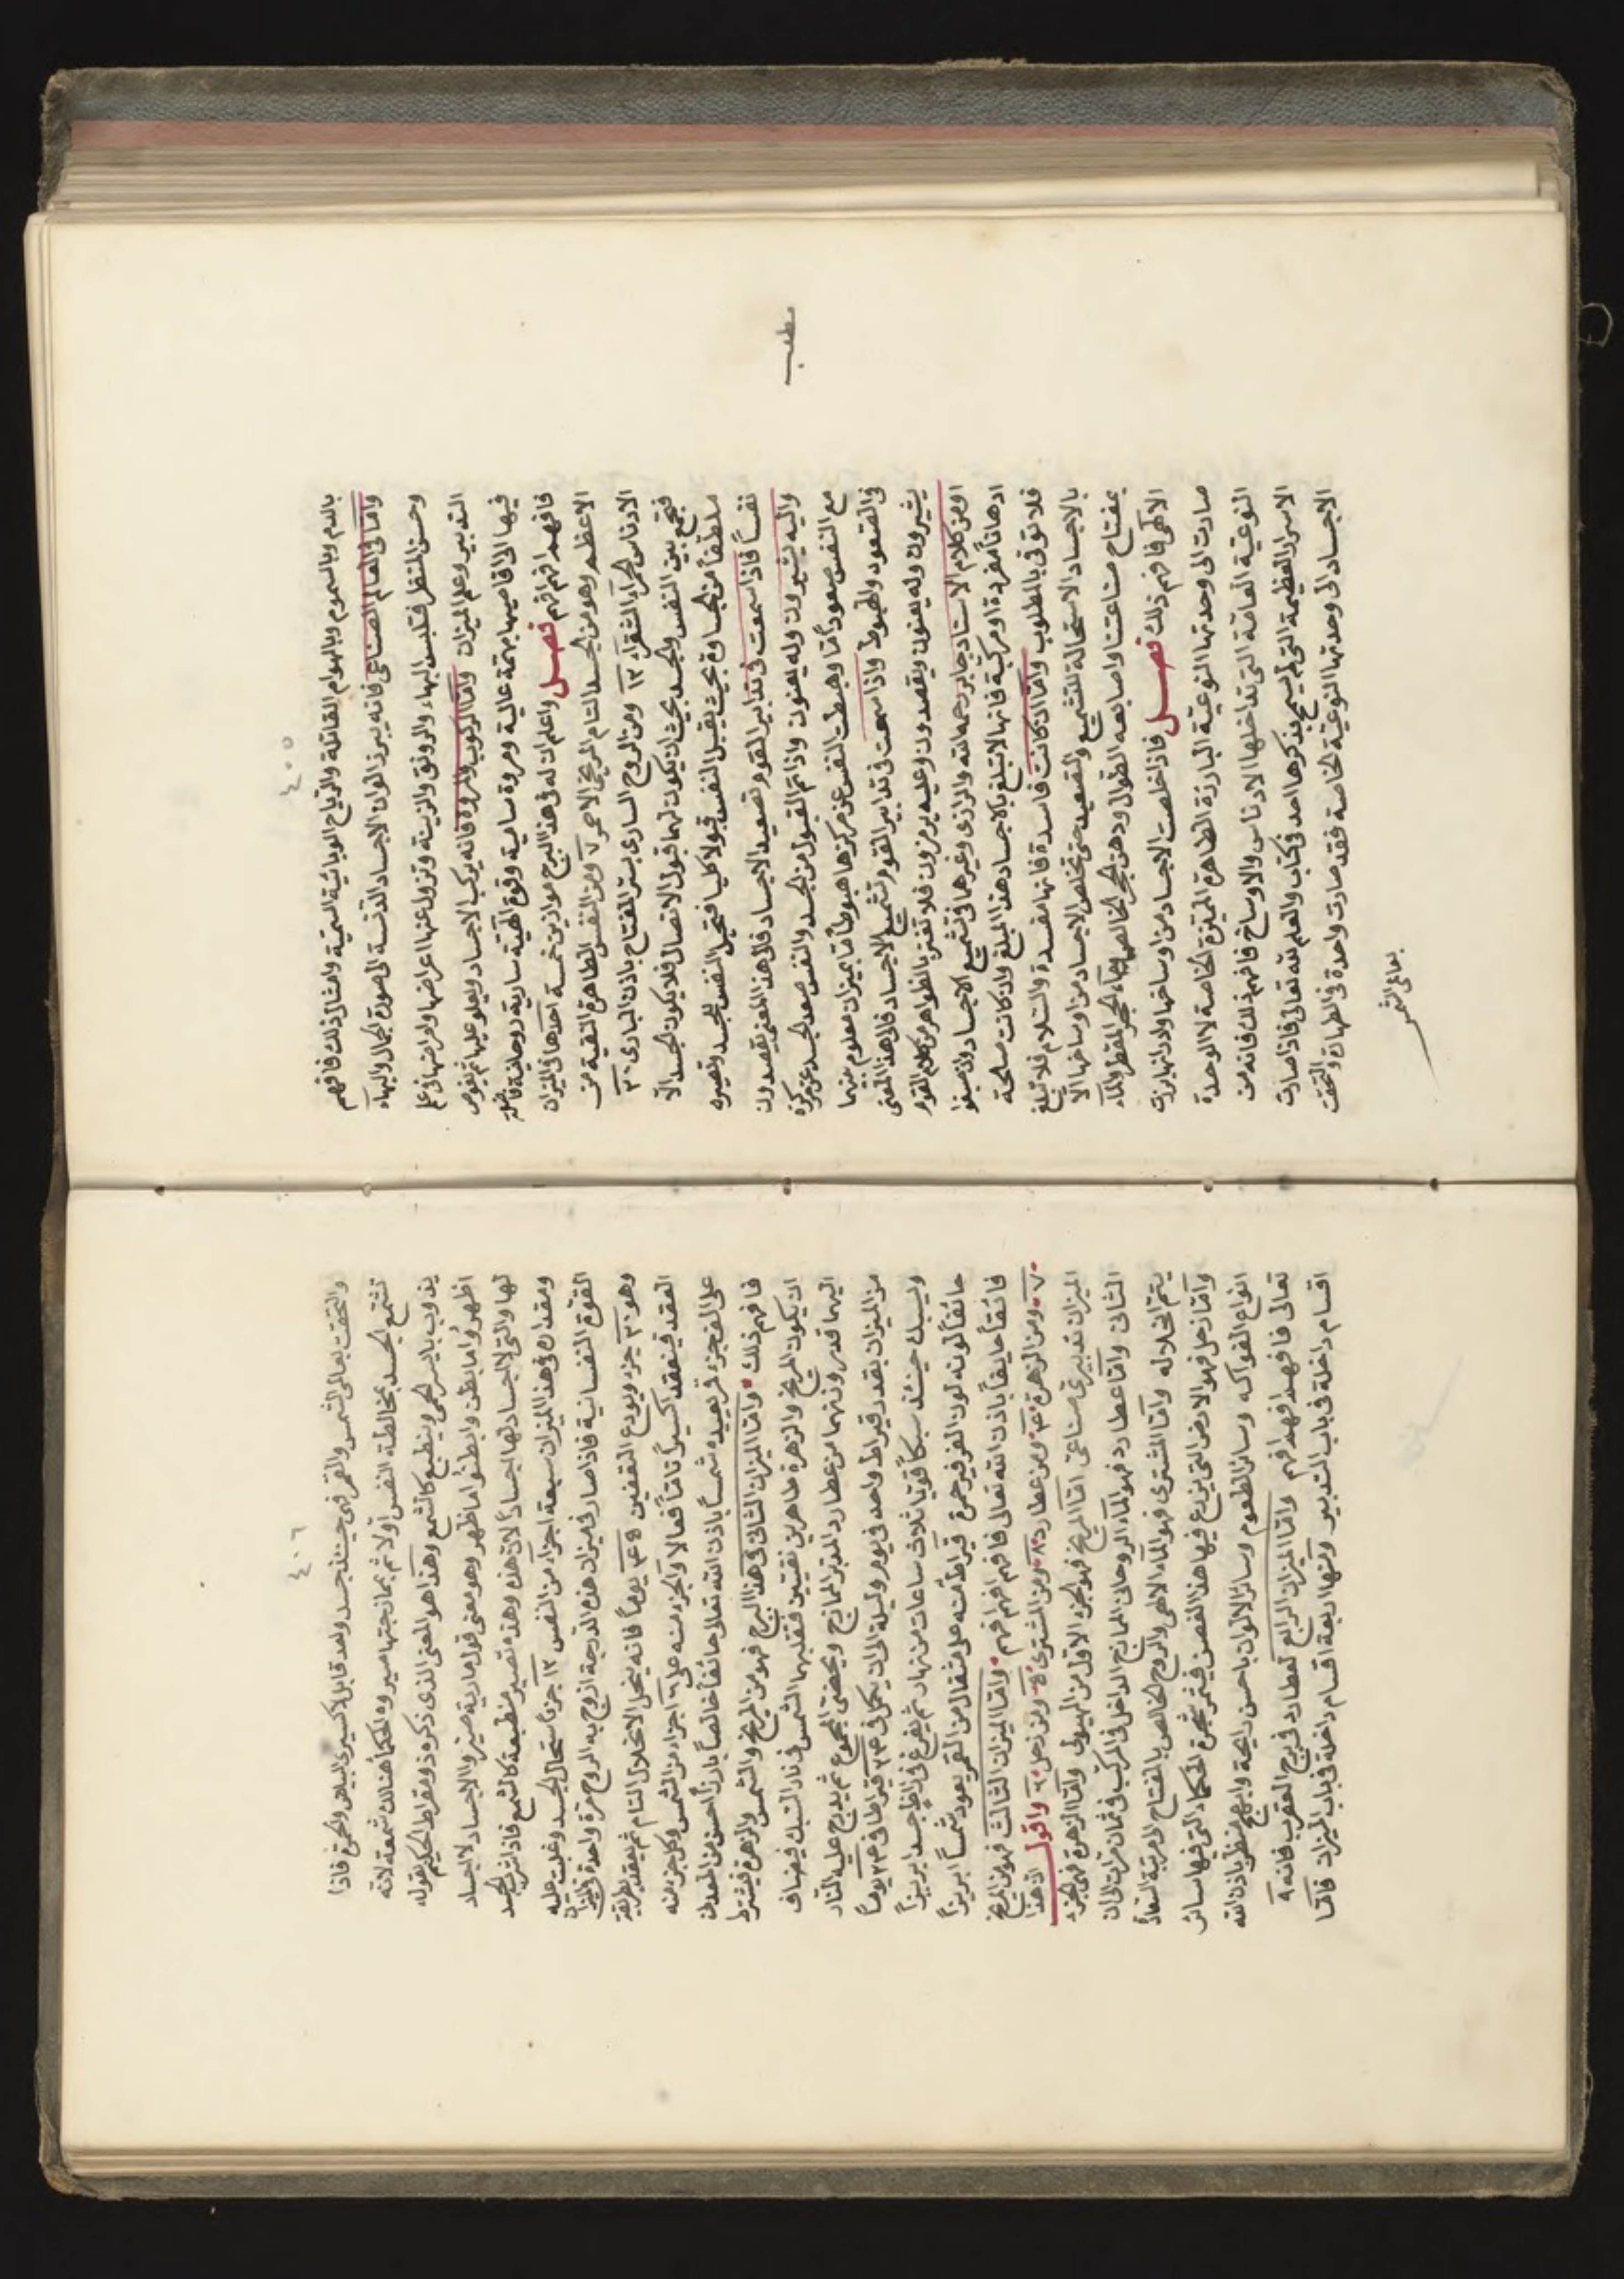 ٤٠٥
بالدم وبالسموم وبالهوام القاتلة والرياح الوبائية السمية وامثال ذلك فافهم
واما فى العالم الصناعى فانه يبرز الوان الاجساد الدنسة الى صورة الجمال والبهاء
وحسن المنظر فتلبس البهاء والرونق والزينة وتزول عنها اعراضها وامراضها فى علم
التدبير وعلم الميزان واما الركوب والمروة فانه يركب الاجساد ويعلو عليها ثم يغوص
فيها الى اقاصيها بهمة عالية ومروة سامية وقوة الهية سارية روحانية فاضلة
فافهم افهم افهم فصل واعلم ان له فى هذا البرج موازين خمسة احدها فى الميزان
الاعظم وهو من الجسد التام المريخى الاحمر ٧ ومن النفس الطاهرة النقية من
الادناس الحمراء الشقراء ١٢ ومن الروح السارى بسر المفتاح باذن البارى ٣٦
فتجمع بين النفس والجسد بحيث ان يكون لهما قبول الاتصال فلا يكون الجسد الا
ملطفا من الجساوة بحيث يقبل النفس قبولا كليا فتحيل النفس للجسد وتصيره
نفسا فاذا سمعت فى تدابير القوم تصعيد الاجساد فالى هذا المعنى يقصدون
واليه يشيرون وله يعنون واذا تم القبول من الجسد والنفس صعد الجسد عن مركزه
مع النفس صعودا تاما وهبطت النفس عن مركزها هبوطا تاما بميزان معلوم بينهما
فى الصعود والهبوط واذا سمعت فى تدابير القوم تشميع الاجساد فالى هذا المعنى
يشيرون وله يعنون ويقصدون وعليه يرمزون فلا تغتر بالظواهر من كلام القوم
او من كلام الاستاد جابر رحمه الله والرازى وغيرهما فى تشميع الاجساد وان صنفوا
ادهانا مفردة او مركبة فانها لا تبلغ بالاجساد هذا المبلغ وان كانت صالحة
فلا توفى بالمطلوب واما ان كانت فاسدة فانها مفسدة والسلام فلا تبلغ
بالاجساد الاستحالة للتشميع والتصعيد حتى تخلص الاجساد من اوساخها الا
بمفتاح صناعتنا واصابعه الطوال ودهن الحجر الخالص وماء الحجر المقطر والماء
الالهى فافهم ذلك فصل فاذا خلصت الاجساد من اوساخها وادرانها برزت
صارت الى وحدتها النوعية البارزة الطاهرة المتميزة الخاصة لا الوحدة
النوعية العامة التى تداخلها الادناس والاوساخ فافهم ذلك فانه من
الاسرار العظيمة التى لم يسمح بذكرها احد فى كتاب والعلم لله تعالى فاذا صارت
الاجساد الى وحدتها النوعية الخاصة فقد صارت واحدة فى الطهارة والتحقت
بمعانى الشمس
مطلب
٤٠٦
والتحقت بمعالى الشمس والقمر فهى حينئذ جسد واحد قابل لاكسيرى البياض والحمرة فاذا
تشمع الجسد بمخالطة النفس اولا ثم بممازجتها صيروه الحكما هنالك شمعة لانه
يذوب بايسر الحمى وينطبع كالشمع وهذا هو المعنى الذى ذكره ذومقراط الحكيم بقوله
اظهروا ما بطن وابطنوا ما ظهر وهو معنى قول مارية صيروا الاجساد لا اجساد
لها والتى لا اجساد لها اجسادا لان هذه وهذه تصير منطبعة كالشمع فاذا شرب الجسد
ومقداره فى هذا الميزان سبعة اجزاء من النفس ١٢ جزءا استحال الجسد وغلبت عليه
القوة النفسانية فاذا صار فى ميزان هذه الدرجة ازوج به الروح مرة واحدة
وهو ٣٠ جزء ويودع التعفين يوما فانه ينحل الانحلال التام ثم يعقد بطريقة
العقد فينعقد اكسيرا تاما فعالا والجزء منه على ٦ اجزاء من الشمس وكل جزء منه
على الف جزء قمر بعيده شمسا باذن الله تعالى حائفا خالصا بارزا احسن من المعدن
فافهم ذلك واما الميزان الثانى فى هذا البرج فهو من المريخ والشمس والزهرة فيشترط
ان يكون المريخ والزهرة طاهرين نقيين فتقلبهما الشمس فى نار السبك فيضاف
اليهما قدر وزنهما من عطارد المدبر الممازج ويحضن المجموع ثم يدبرج عليه النار
من الميزان بقدر قيراط واحد فى يوم وليلة الى ان يكمل فى قيراطا فى يوما
ويسبك حينئذ سبكا قويا ثلاث ساعات من نهار ثم يفرغ فى جسدا بريزا
حائفا لونه لون الفرفير حمرة قيراط منه على مثقال من القمر يعود شمسا ابريزا
فائقا حايفا باذن الله تعالى فافهم افهم افهم واما الميزان الثالث فهو من المريخ
٧ ومن الزهرة ومن عطارد ٨ ومن المشترى ومن زحل واقول ان هذا
الميزان تدبيرى صناعى اما المريخ فهو الجزء الاول من الهيولى واما الزهرة فهى الجزء
الثانى واما عطارد فهو الماء الروحانى الممازج الداخل فى المركب فى ثمان مرات الى ان
يتم انحلاله واما المشترى فهو الماء الالهى والروح الخالص بالمفتاح لا مرتبة السعادة
واما زحل فهو الارض التى يزرع فيها هذا الغصن فيثمر شجرة الحكماء التى فيها سائر
انواع الفواكه وسائر الطعوم وسائر الالوان باحسن رائحة وابهج منظر باذن الله
تعالى فافهم افهم افهم واما الميزان الرابع لعطارد فى برج العقرب فانه ٩
اقسام داخلة فى باب التدبير ولها اربعة اقسام داخلة فى باب الميزان فاما